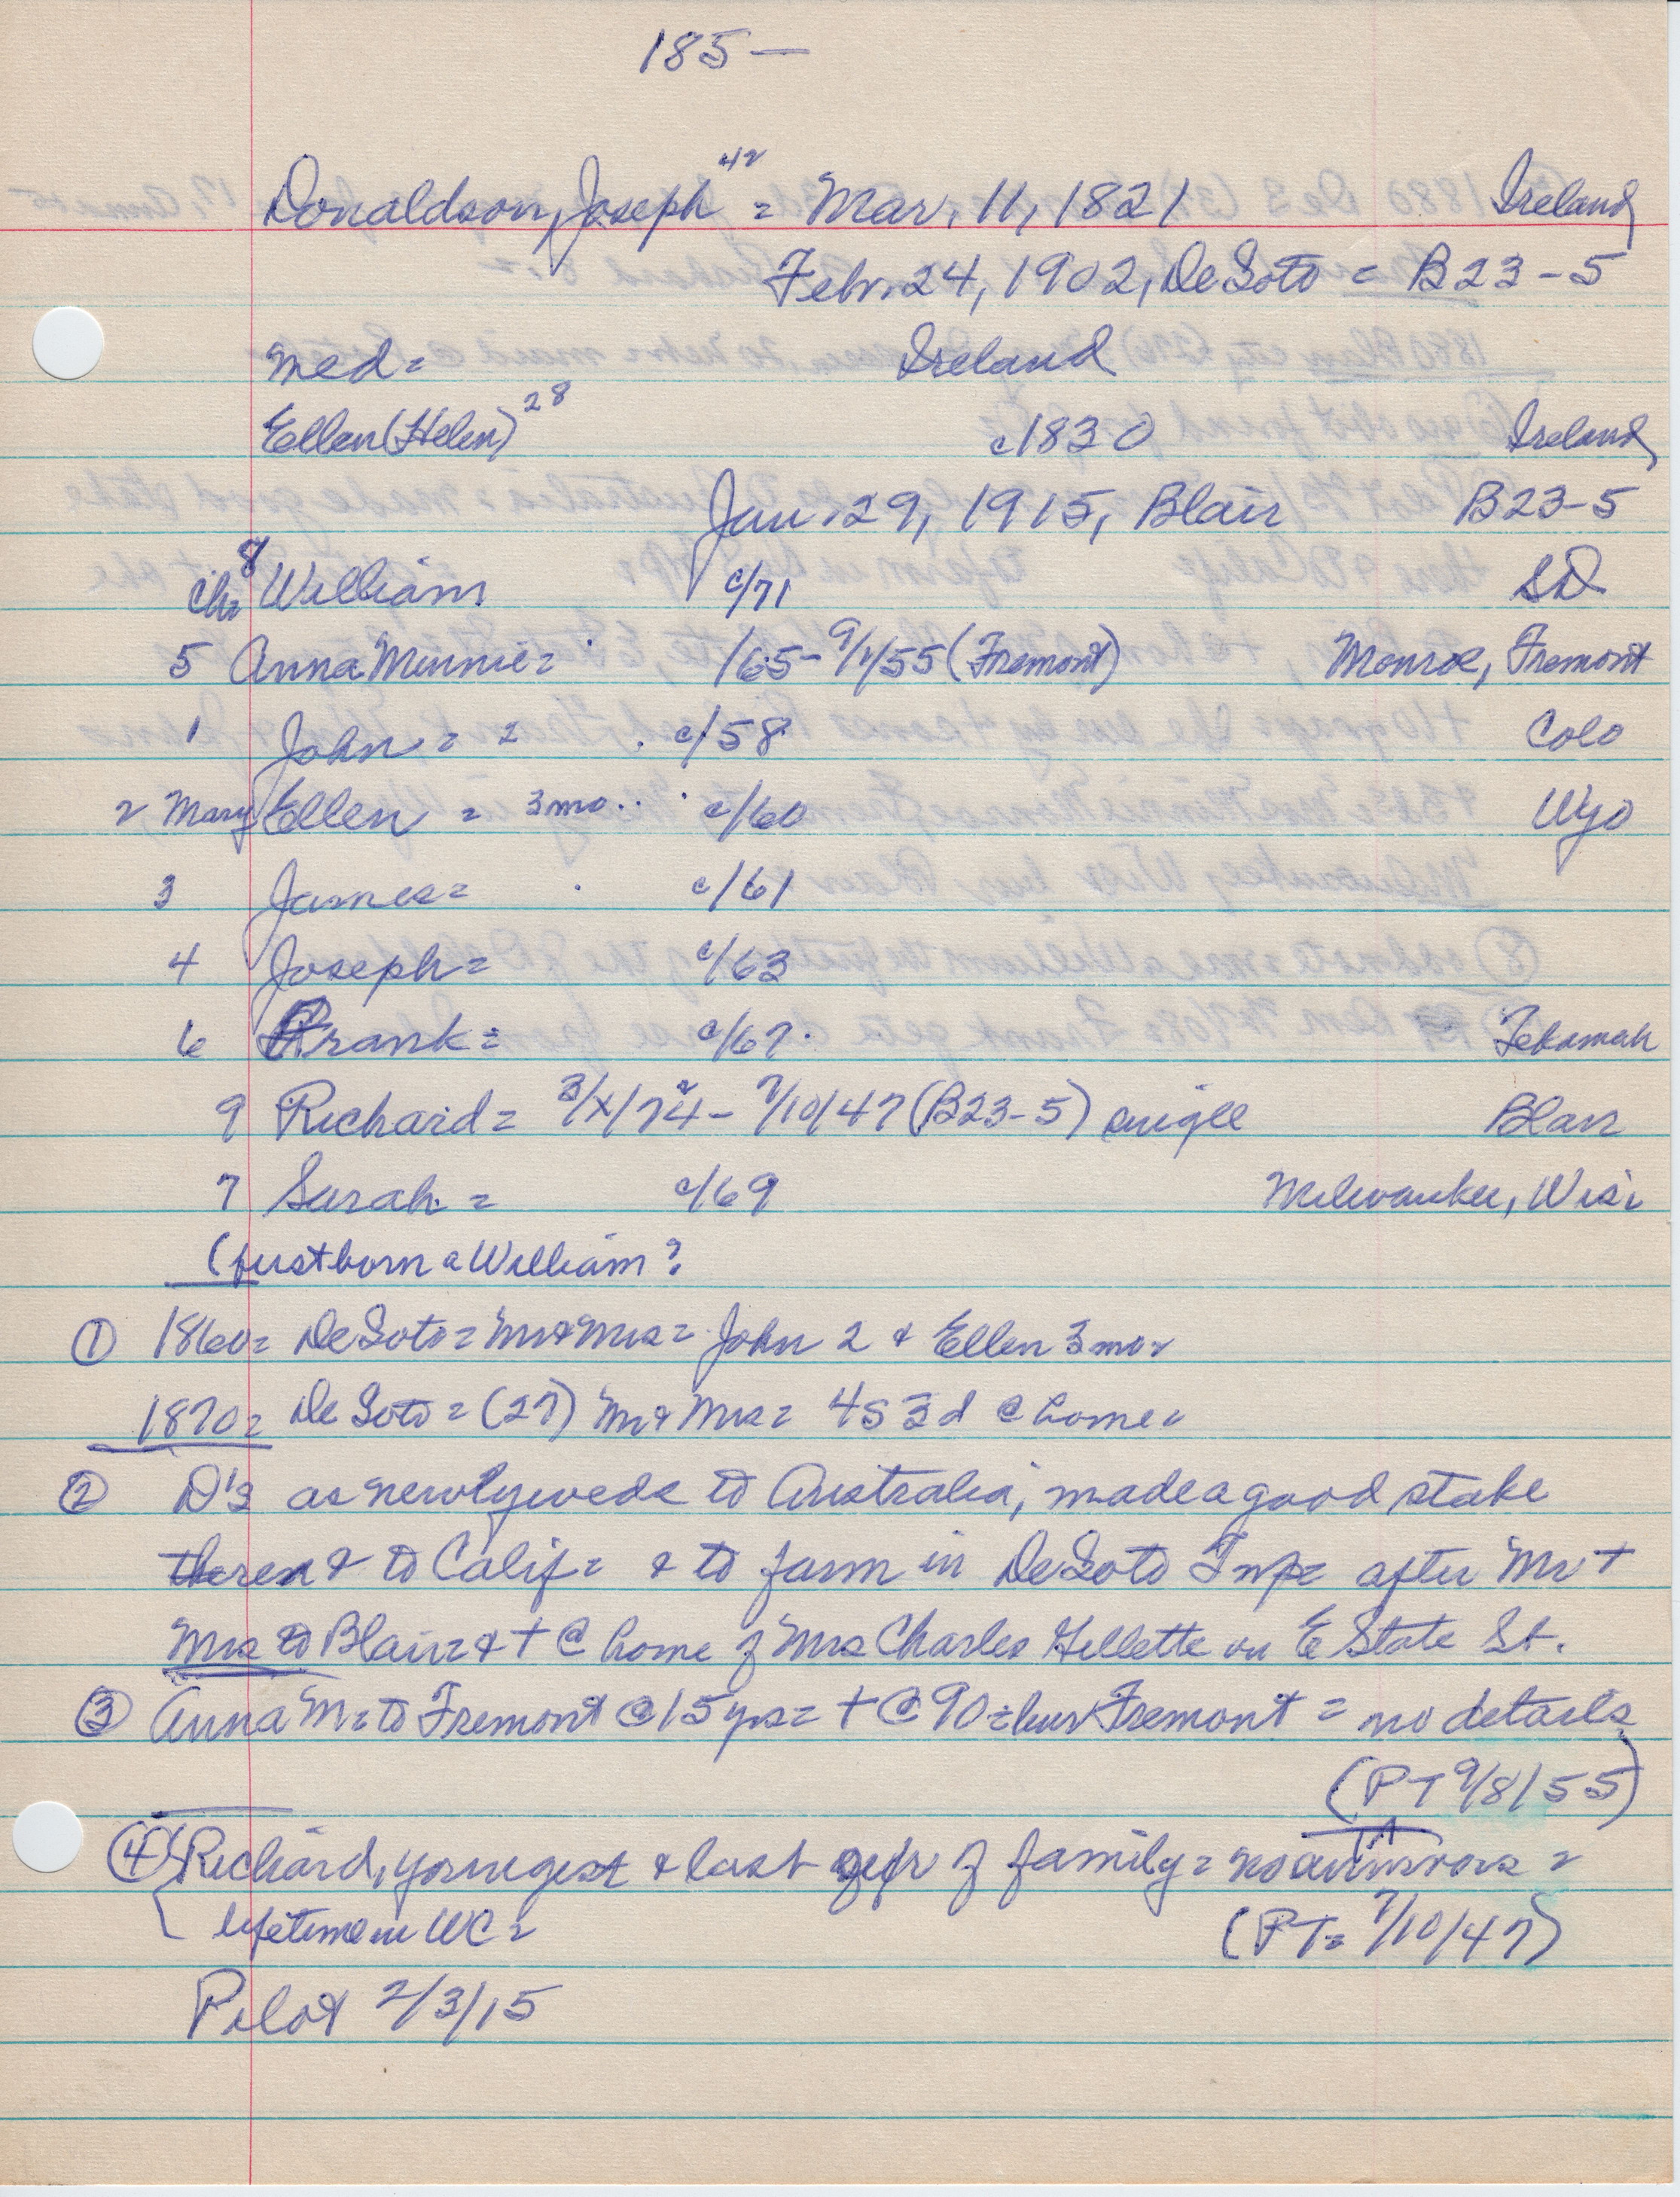 185—
Donaldson, Joseph 42 = Mar. 11, 1821 Ireland
Febr. 24, 1902, DeSoto = B23-5
med= Ireland
Ellen (Helen) 28 c1830 Ireland
Jan. 29, 1915, Blair B23-5
ch= 8 William c/71 SD
5 Anna Minnie= /65-9/1/55 (Fremont) Monroe, Fremont
1 John = 2 c/58 Colo
2 Mary Ellen = 3mo.. c/60 Wyo
3 James= c/61
4 Joseph= c/63
6 Frank= c/67. Tekamah
9 Richard= 3/x/74- 7/10/47 (B23-5) single Blair
7 Sarah = c/69 Milwaukee, Wis=
(firstborn a William?
① 1860= DeSoto= Mr & Mrs= John 2 & Ellen 3mo=
1870= DeSoto= (27) Mr & Mrs= 4s 3d @ home=
② D's as newlyweds to Australia, made a good stake
there & to Calif= & to farm in DeSoto Twp= after Mr +
Mrs to Blair= & + @ home of Mrs Charles Gellette on E State St.
③ Anna M= to Fremont @ 15 yrs= + @ 90= bur Fremont = no details
(PT 9/8/55)
④ Richard, youngest & last of family= no survivors=
lifetime in WC=
(PT= 7/10/47)
Pilot 2/3/15